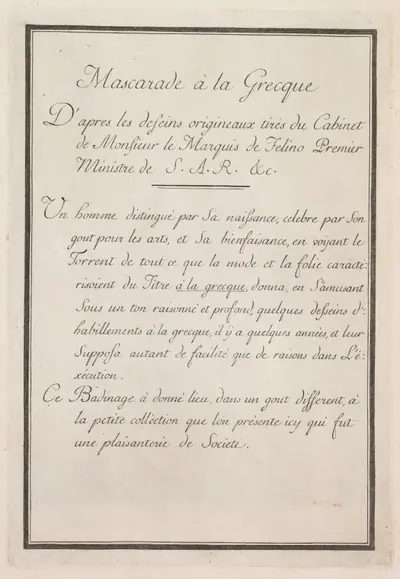 Mascarade à la Grecque
D'apres les deſeins origineaux tirés du Cabinet
de Monſieur le Marquis de Felino Premier
Ministre de S. A. R. &c.
Un homme distingué par Sa naiſsance, celebre par Son
gout pour les arts, et Sa bienfaisance, en voyant le
Torrent de tout ce que la mode et la folie caracté-
risoient du Titre à la grecque, donna, en S'amusant
Sous un ton raisonné et profond, quelques deſseins d'-
habillements à la grecque, il y a quelques années, et leur
Suppoſa autant de facilité que de raisons dans L'é-
xécution.
Ce Badinage à donné lieu, dans un gout different, à
la petite colléction que lon présente icy qui fut
une plaisanterie de Societé.